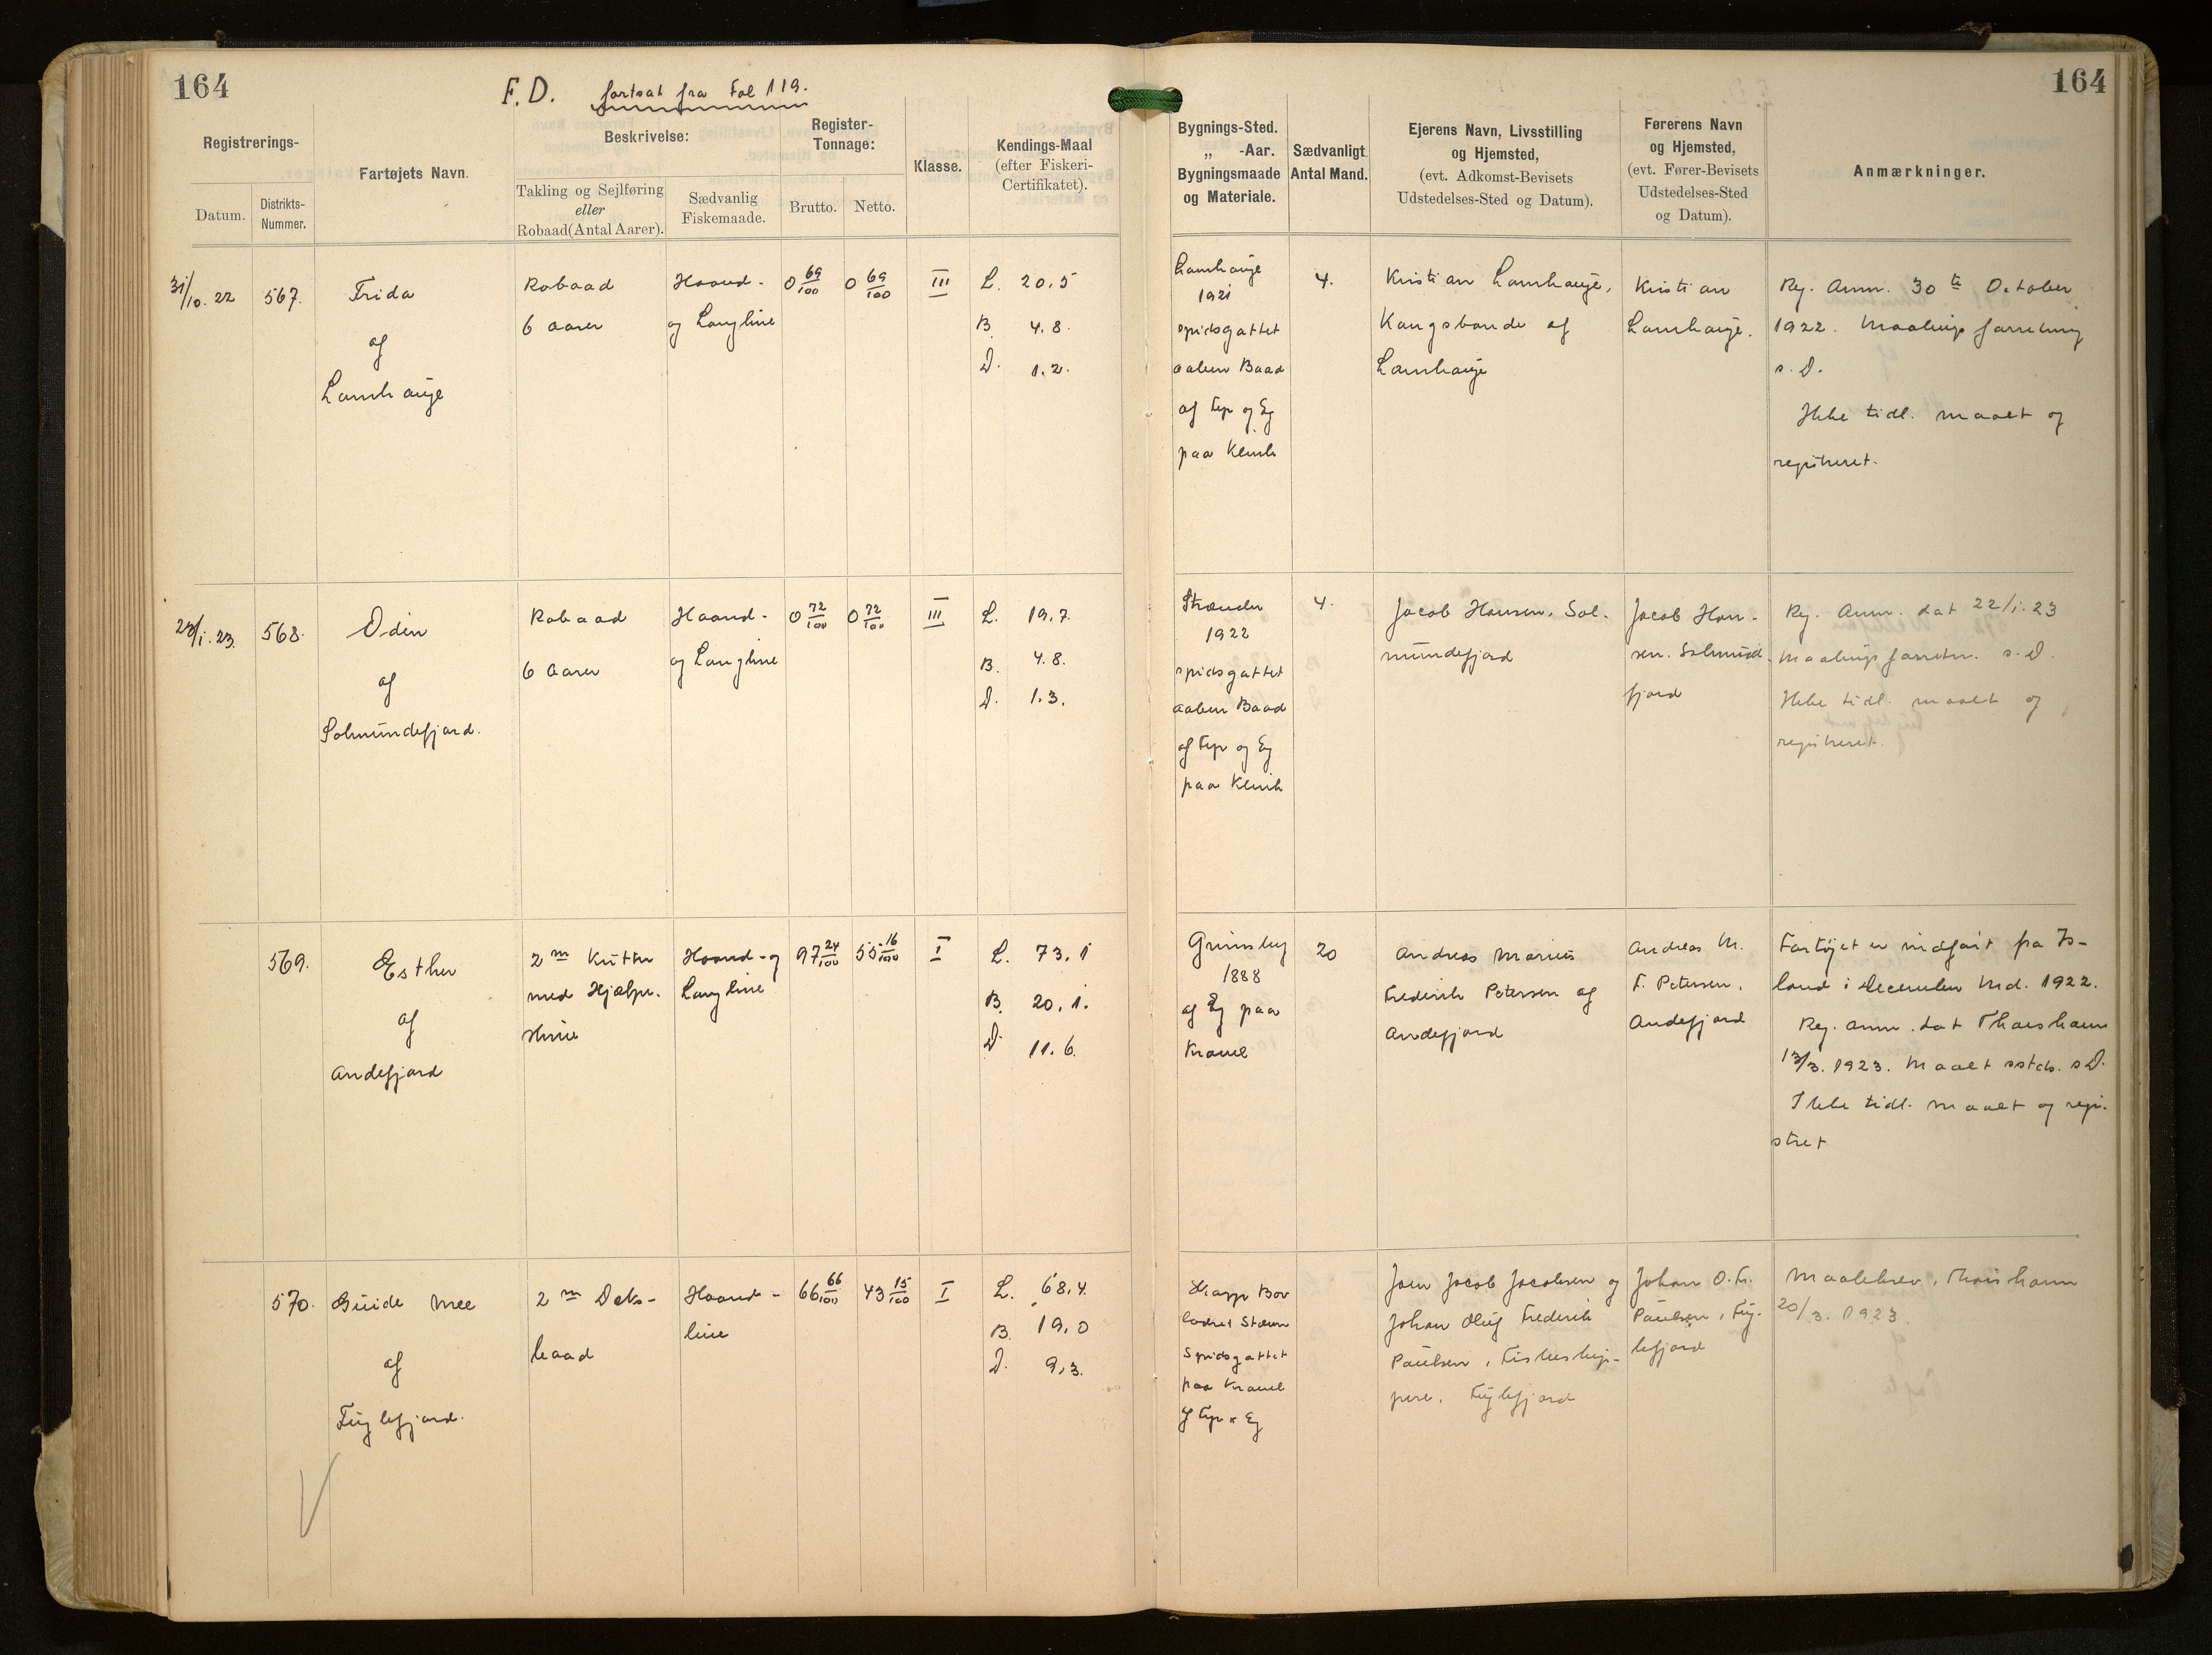 164
F.D. fortsat fra Fol 119.
164
Registrerings-
Datum.
Distrikts-
Nummer.
Fartøjets Navn.
Beskrivelse:
Takling og Sejlføring
eller
Robaad (Antal Aarer).
Sædvanlig
Fiskemaade.
Register-
Tonnage:
Brutto.
Netto.
Klasse.
Kendings-Maal
(efter Fiskeri-
Certifikatet).
Bygnings-Sted.
„ -Aar.
Bygningsmaade
og Materiale.
Sædvanligt
Antal Mand.
Ejerens Navn, Livsstilling
og Hjemsted,
(evt. Adkomst-Bevisets
Udstedelses-Sted og Datum).
Førerens Navn
og Hjemsted,
(evt. Fører-Bevisets
Udstedelses-Sted
og Datum).
Anmærkninger.
31/10. 22
567.
Frida
af
Lamhauge
Robaad
6 Aarer
Haand-
og Langline
0 69/100
0 69/100
III
L. 20,5
B. 4.8.
D. 1.2.
Lamhauge
1921
spidsgattet
aaben Baad
af Fyr og Eg
paa Klink
4.
Kristian Lamhauge,
Kongsbonde af
Lamhauge
Kristian
Lamhauge.
Reg. Anm. 30 te October
1922. Maalings forretning
s. D.
Ikke tidl. maalt og
registreret.
23/1. 23.
568.
Odin
af
Solmundefjord.
Robaad
6 Aarer
Haand-
og Langline
0 72/100
0 72/100
III
L. 19,7.
B. 4.8.
D. 1.3.
Strænder
1922
spidsgattet
aaben Baad
af Fyr og Eg
paa Klink
4.
Jacob Hansen, Sol-
mundefjord
Jacob Han-
sen. Solmund.
fjord
Reg. Anm. dat 22/1. 23
Maalings forretn. s. D.
Ikke tidl. maalt og
registreret.
569.
Esther
af
Andefjord
2 m Kutter
med Hjælpe.
Skrue
Haand- og
Langline
97 24/100
55 16/100
I
L. 73,1
B. 20,1.
D. 11.6.
Grimsby
1888
af Eg paa
Kravel
20
Andreas Marius
Frederik Petersen af
Andefjord
Andreas M.
F. Petersen,
Andefjord
Fartøjet er indført fra Is-
land i December Md. 1922.
Reg. anm. dat Thorshavn
13/3. 1923. Maalt sstds. s D.
Ikke tidl. maalt og regi-
stret
570.
Guide Mee
af
Fuglefjord.
2 m Dæks-
baad
Haand-
line
66 66/100
43 15/100
I
L. 68,4.
B. 19,0
D. 9,3.
Skarp Bov
lodret Stævn
Spidsgattet
paa Kravel
af Fyr x Eg
Joen Jacob Jacobsen og
Johan Oluf Frederik
Paulsen, Fiskeskip-
pere, Fuglefjord
Johan O. Fr.
Paulsen, Fug-
lefjord
Maalebrev, Thorshavn
20/3. 1923.